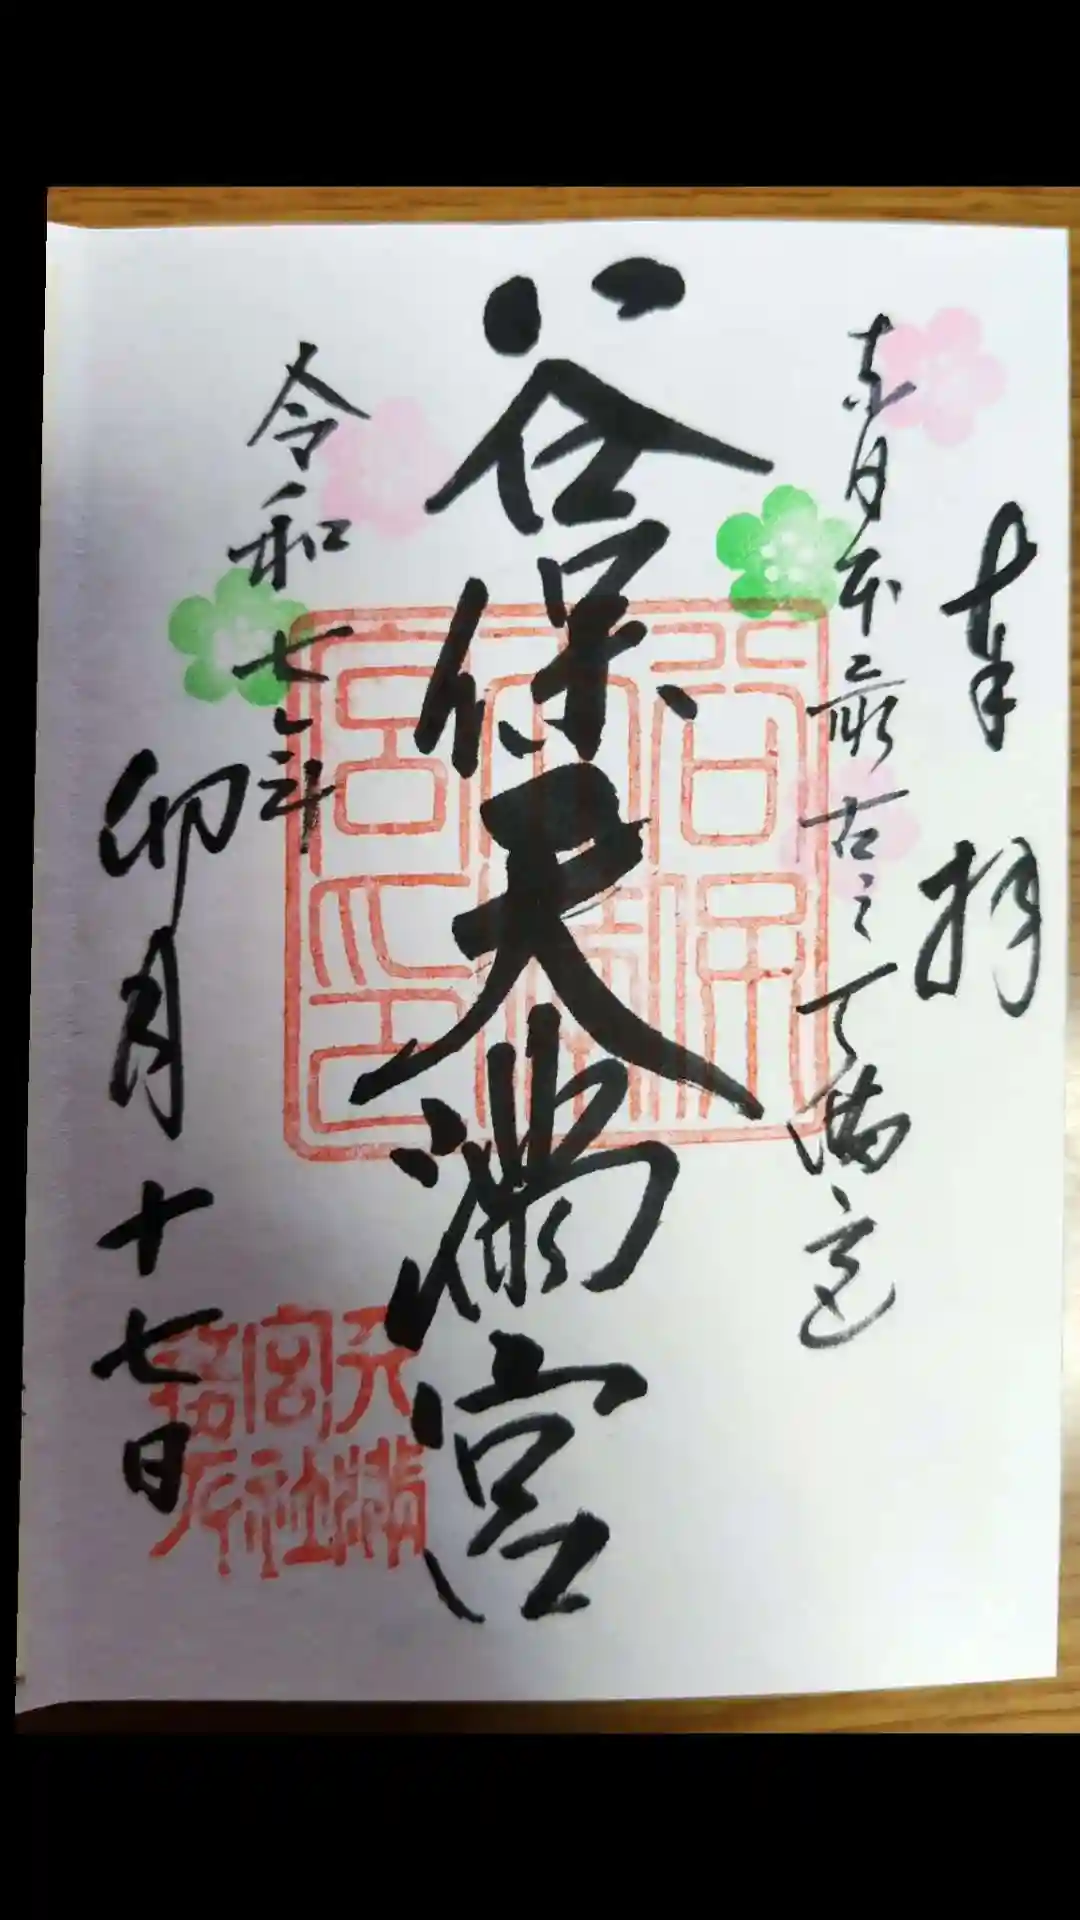 奉拝
東日本最古之天満宮
谷保天満宮
令和七年
卯月十七日
谷保天満宮印
天満宮社務所